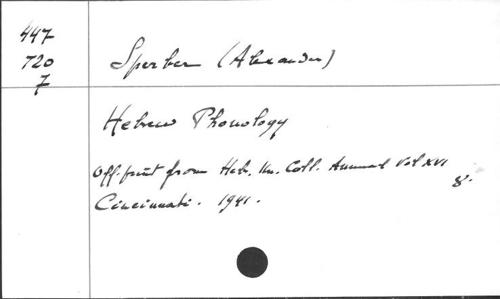 447
720
7
Sperber (Alexander)
Hebrew Phonology
Offprint from Heb. Un. Coll. Annual Vol XVI
8.
Cincinnati. 1941.